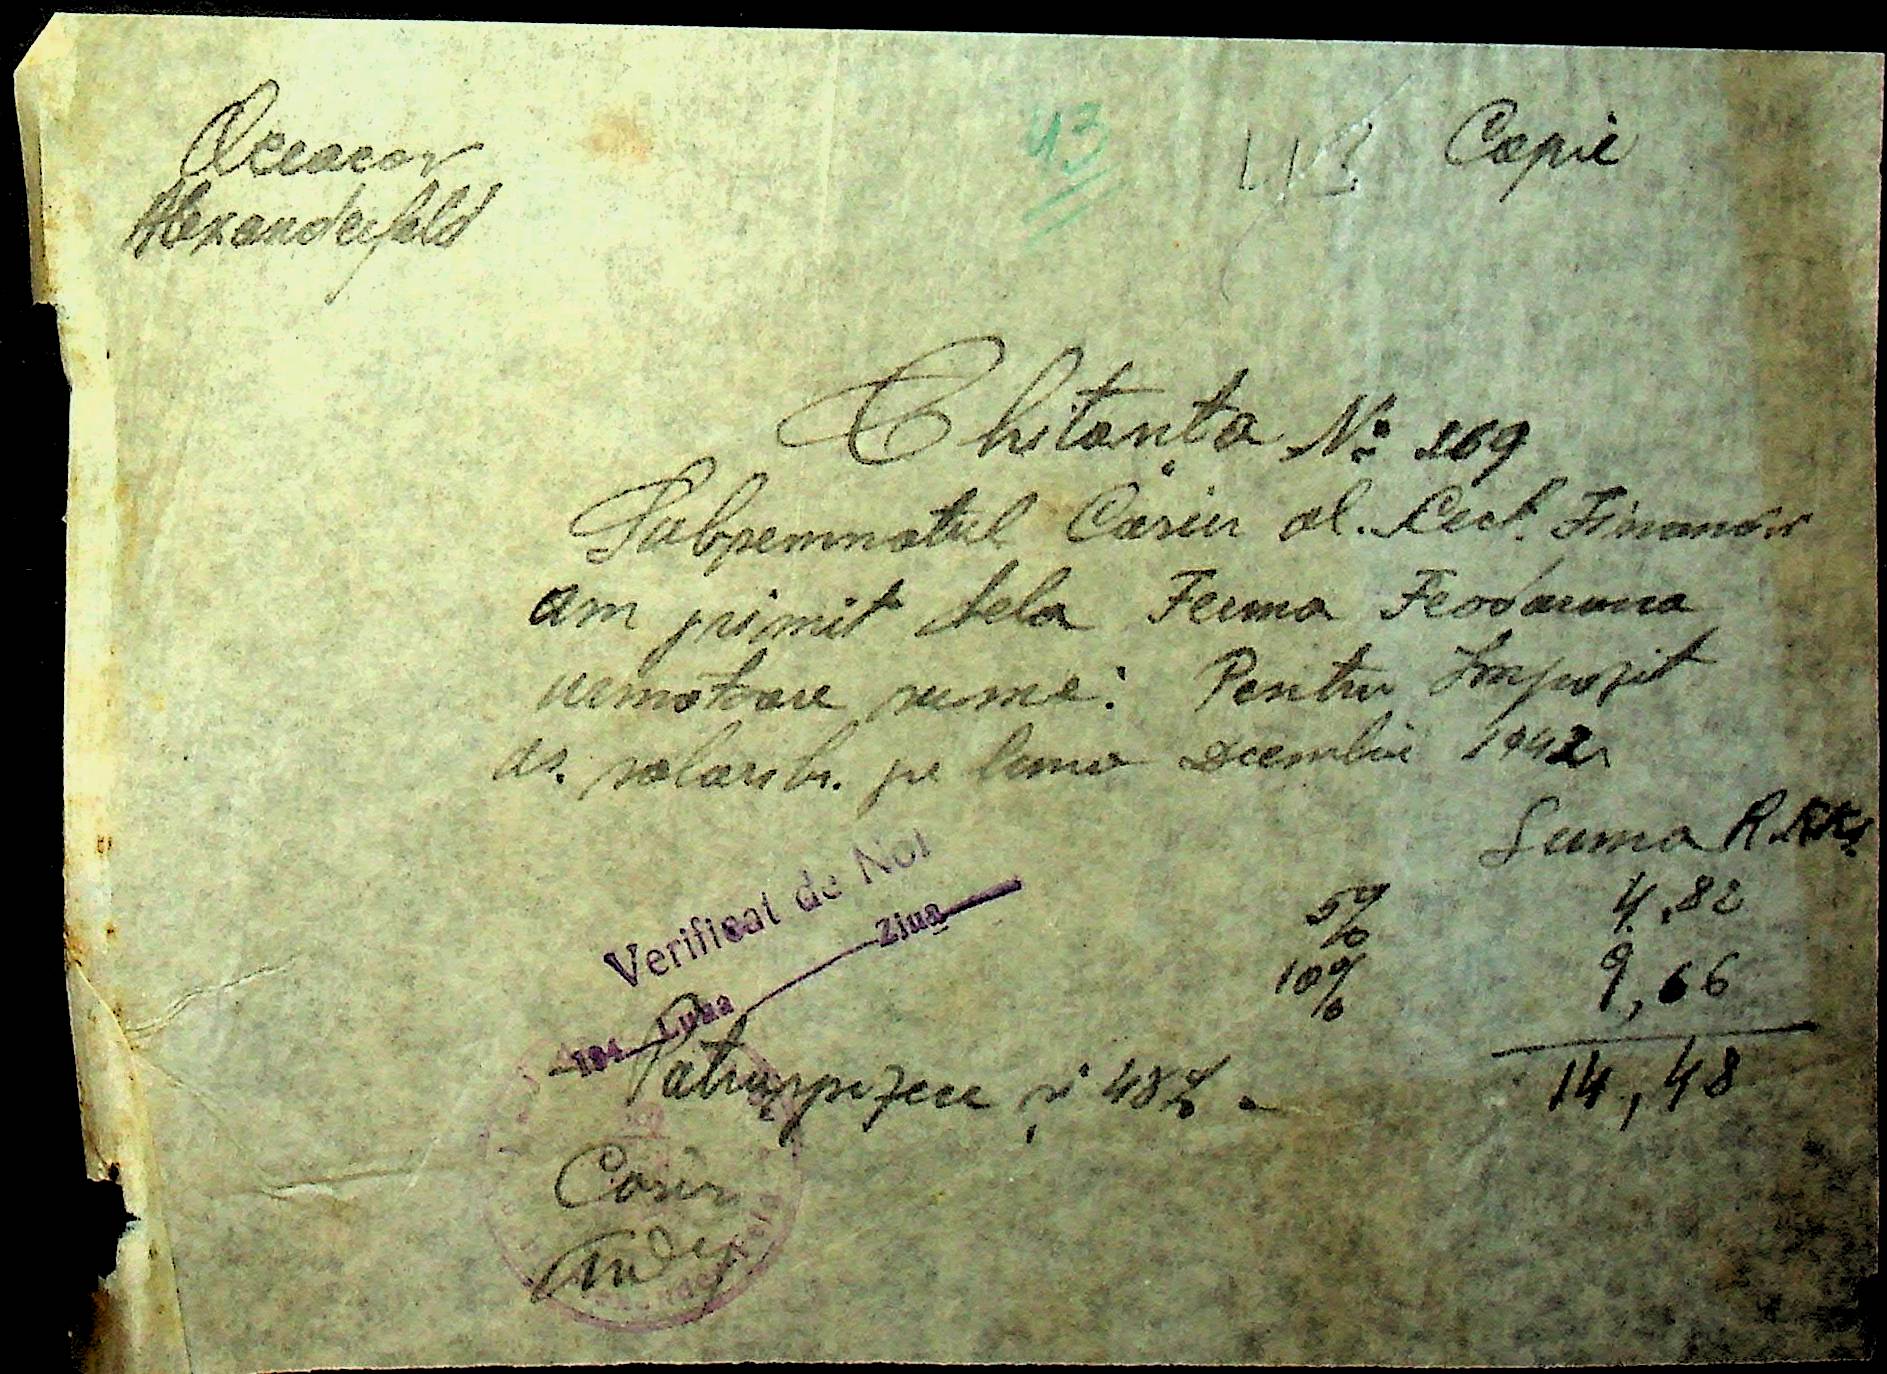 Oceacov
Alexanderfeld
43
113
Copie
Chitanța No 169
Subsemnatul Casier al. Sect. Financiar
am primit dela Ferma Feodarovca
urmatoare sume: Pentru Impozit
as. salariilr. pe luna Decembrie 1942
Suma R.KKs.
5% 4,82
10% 9,66
14,48
Verificat de Noi
194 Luna Ziua
Patrusprezece și 48%
Casier